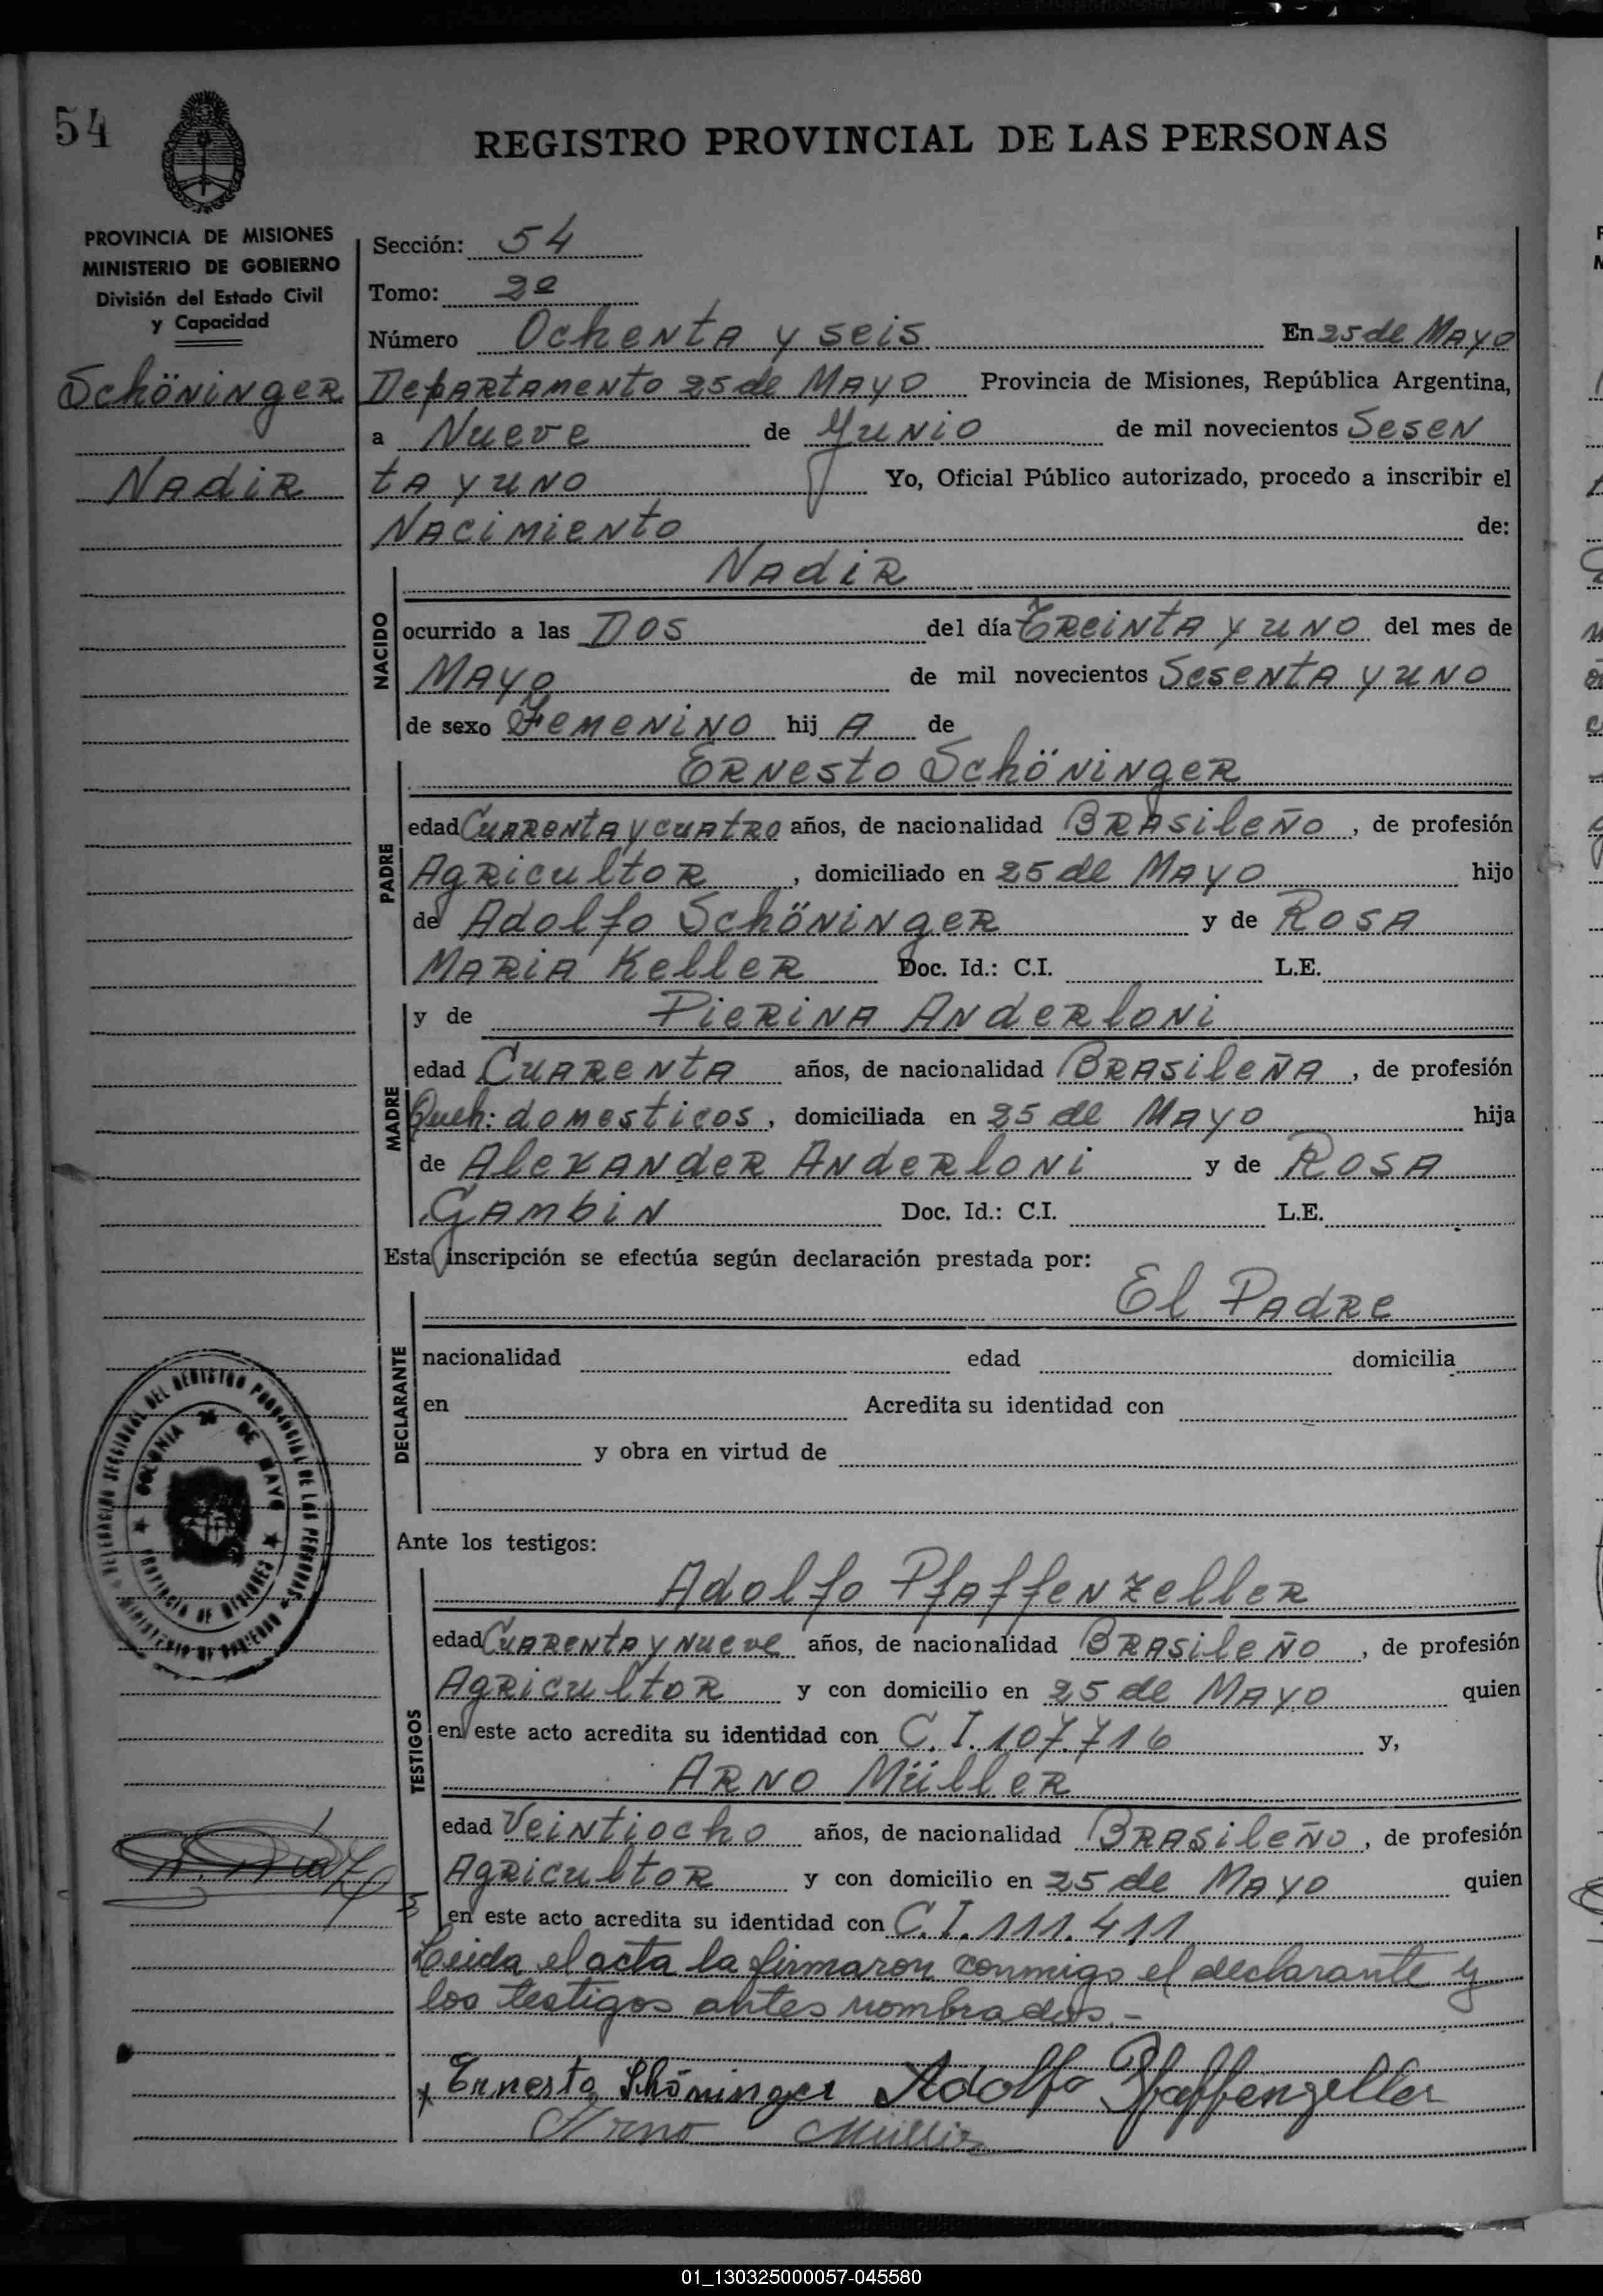 54
REGISTRO PROVINCIAL DE LAS PERSONAS
PROVINCIA DE MISIONES
MINISTERIO DE GOBIERNO
División del Estado Civil
y Capacidad
Schöninger
Nadir
Sección: 54
Tomo: 2º
Número Ochenta y seis En 25 de Mayo
Departamento 25 de Mayo Provincia de Misiones, República Argentina,
a Nueve de Junio de mil novecientos Sesen
ta y uno Yo, Oficial Público autorizado, procedo a inscribir el
Nacimiento de:
Nadir
NACIDO
ocurrido a las Dos del día Treinta y uno del mes de
Mayo de mil novecientos Sesenta y uno
de sexo Femenino hij A de
Ernesto Schöninger
PADRE
edad Cuarenta y cuatro años, de nacionalidad Brasileño, de profesión
Agricultor, domiciliado en 25 de Mayo hijo
de Adolfo Schöninger y de Rosa
Maria Keller Doc. Id.: C.I. L.E.
y de Pierina Anderloni
MADRE
edad Cuarenta años, de nacionalidad Brasileña, de profesión
Queh: domesticos, domiciliada en 25 de Mayo hija
de Alexander Anderloni y de Rosa
Gambin Doc. Id.: C.I. L.E.
Esta inscripción se efectúa según declaración prestada por:
El Padre
DECLARANTE
nacionalidad edad domicilia
en Acredita su identidad con
y obra en virtud de
DELEGACION SECCIONAL DEL REGISTRO PROVINCIAL DE LAS PERSONAS
MINISTERIO DE GOBIERNO
COLONIA 25 DE MAYO
PROVINCIA DE MISIONES
Ante los testigos:
Adolfo Pfaffenzeller
TESTIGOS
edad Cuarenta y nueve años, de nacionalidad Brasileño, de profesión
Agricultor y con domicilio en 25 de Mayo quien
en este acto acredita su identidad con C.I. 107.716 y,
Arno Müller
edad Veintiocho años, de nacionalidad Brasileño, de profesión
Agricultor y con domicilio en 25 de Mayo quien
en este acto acredita su identidad con C.I. 111.411
Leida el acta la firmaron conmigo el declarante y
los testigos antes nombrados.-
x Ernesto Schöninger Adolfo Pfaffenzeller
Arno Müller
01_130325000057-045580